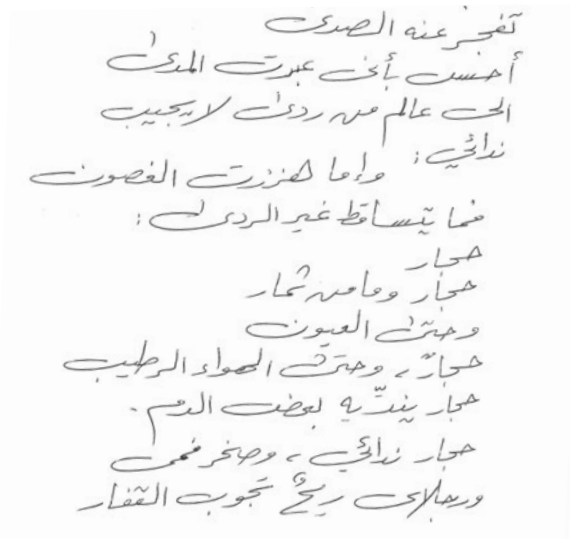 تفجر عنه الصدى
أحسّ بأنى عبرت المدى
الى عالم من ردى لا يجيب
ندائي؛
وإما هززت الغصون
فما يتساقط غير الردى :
حجار
حجار وما من ثمار
وحتى العيون
حجارٌ ، وحتى الهواء الرطيب
حجار يندّيه بعض الدم .
حجار ندائي ، وصخر فمى
ورجلاى ريحٌ تجوب القفار